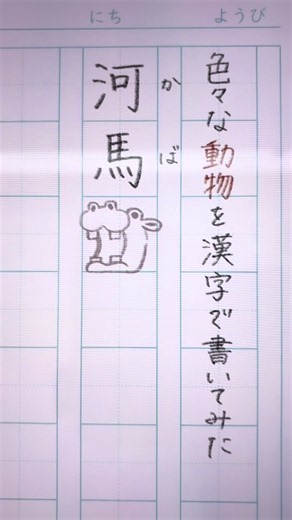 にち ようび
色々な動物を漢字で書いてみた
河馬
かば